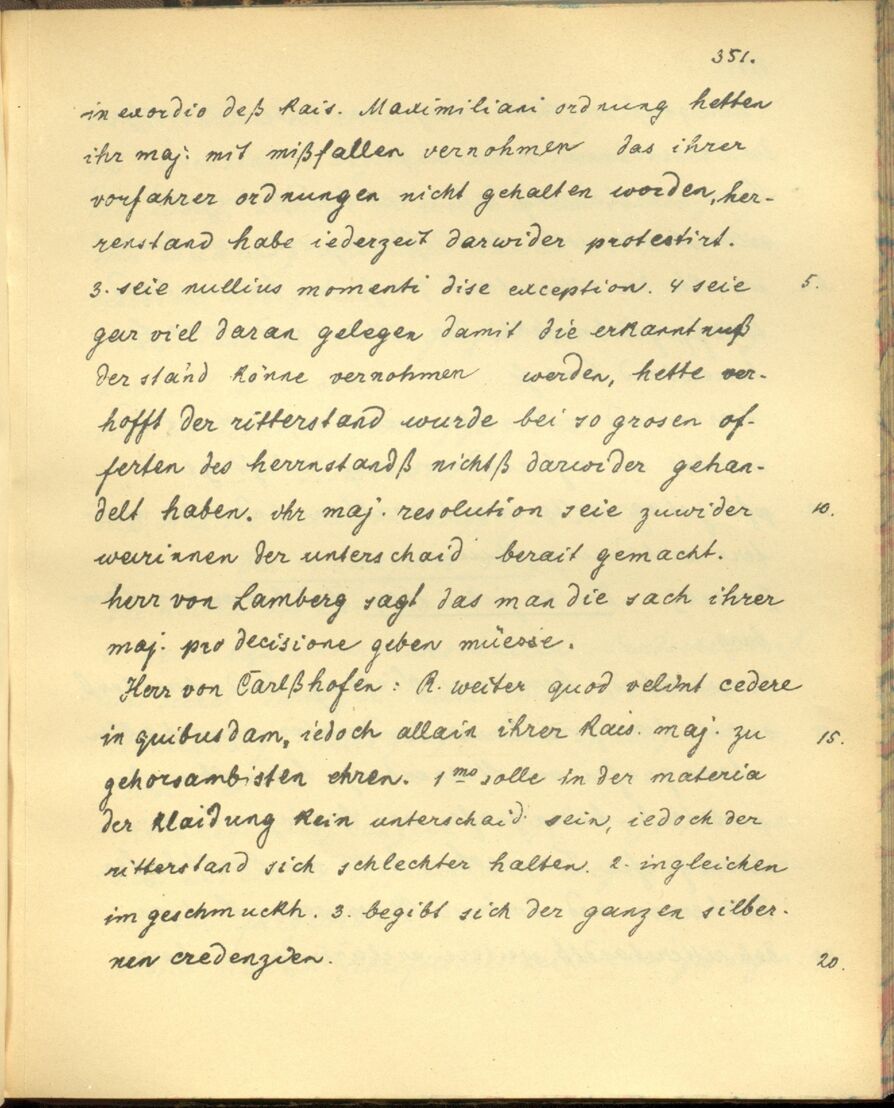 351.
in exordio deß Kais. Maximiliani ordnung hetten
ihr maj: mit mißfallen vernohmen das ihrer
vorfahrer ordnungen nicht gehalten worden, her-
renstand habe iederzeit darwider protestirt.
3. seie nullius momenti dise exception. 4 seie 5.
gar viel daran gelegen damit die erkanntnuß
der ständ könne vernohmen werden, hette ver-
hofft der ritterstand wurde bei so grosen of-
ferten des herrnstandß nichtß darwider gehan-
delt haben. ihr maj. resolution seie zuwider 10.
warinnen der unterschaid berait gemacht.
herr von Lamberg sagt das man die sach ihrer
maj. pro decisione geben müesse.
Herr von Carlßhofen: R. weiter quod velint cedere
in quibusdam, iedoch allain ihrer Kais. maj. zu 15.
gehorsambisten ehren. 1mo solle in der materia
der klaidung kein unterschaid sein, iedoch der
ritterstand sich schlechter halten. 2. ingleichen
im geschmuckh. 3. begibt sich der ganzen silber-
nen credenzien. 20.